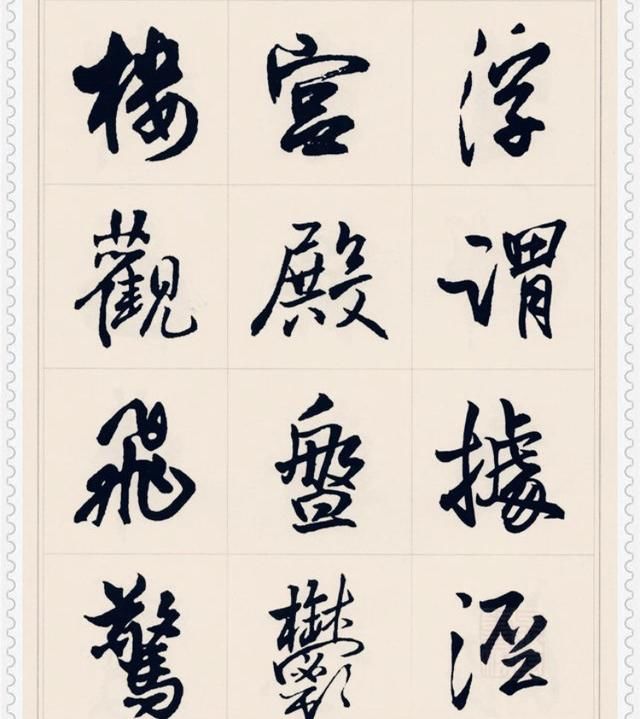 浮謂據涇
宮殿盤鬱
樓觀飛驚